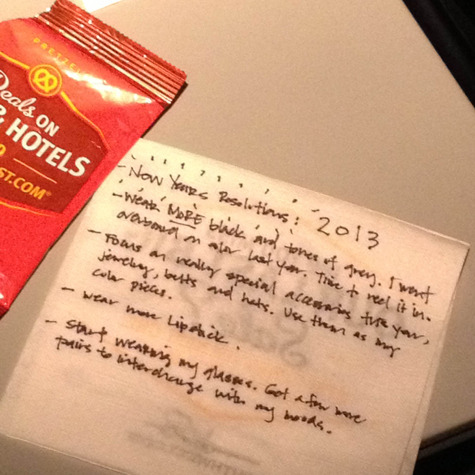 PRETZEL
Deals ON
& HOTELS
ST.COM
- New Years Resolutions: 2013
- Wear MORE black and tones of grey. I went
overboard on color last year. Time to reel it in.
- Focus on really special accessories this year,
jewelry, belts and hats. Use them as my
color pieces.
- wear more Lipstick.
- Start wearing my glasses. Get a few more
pairs to interchange with my moods.